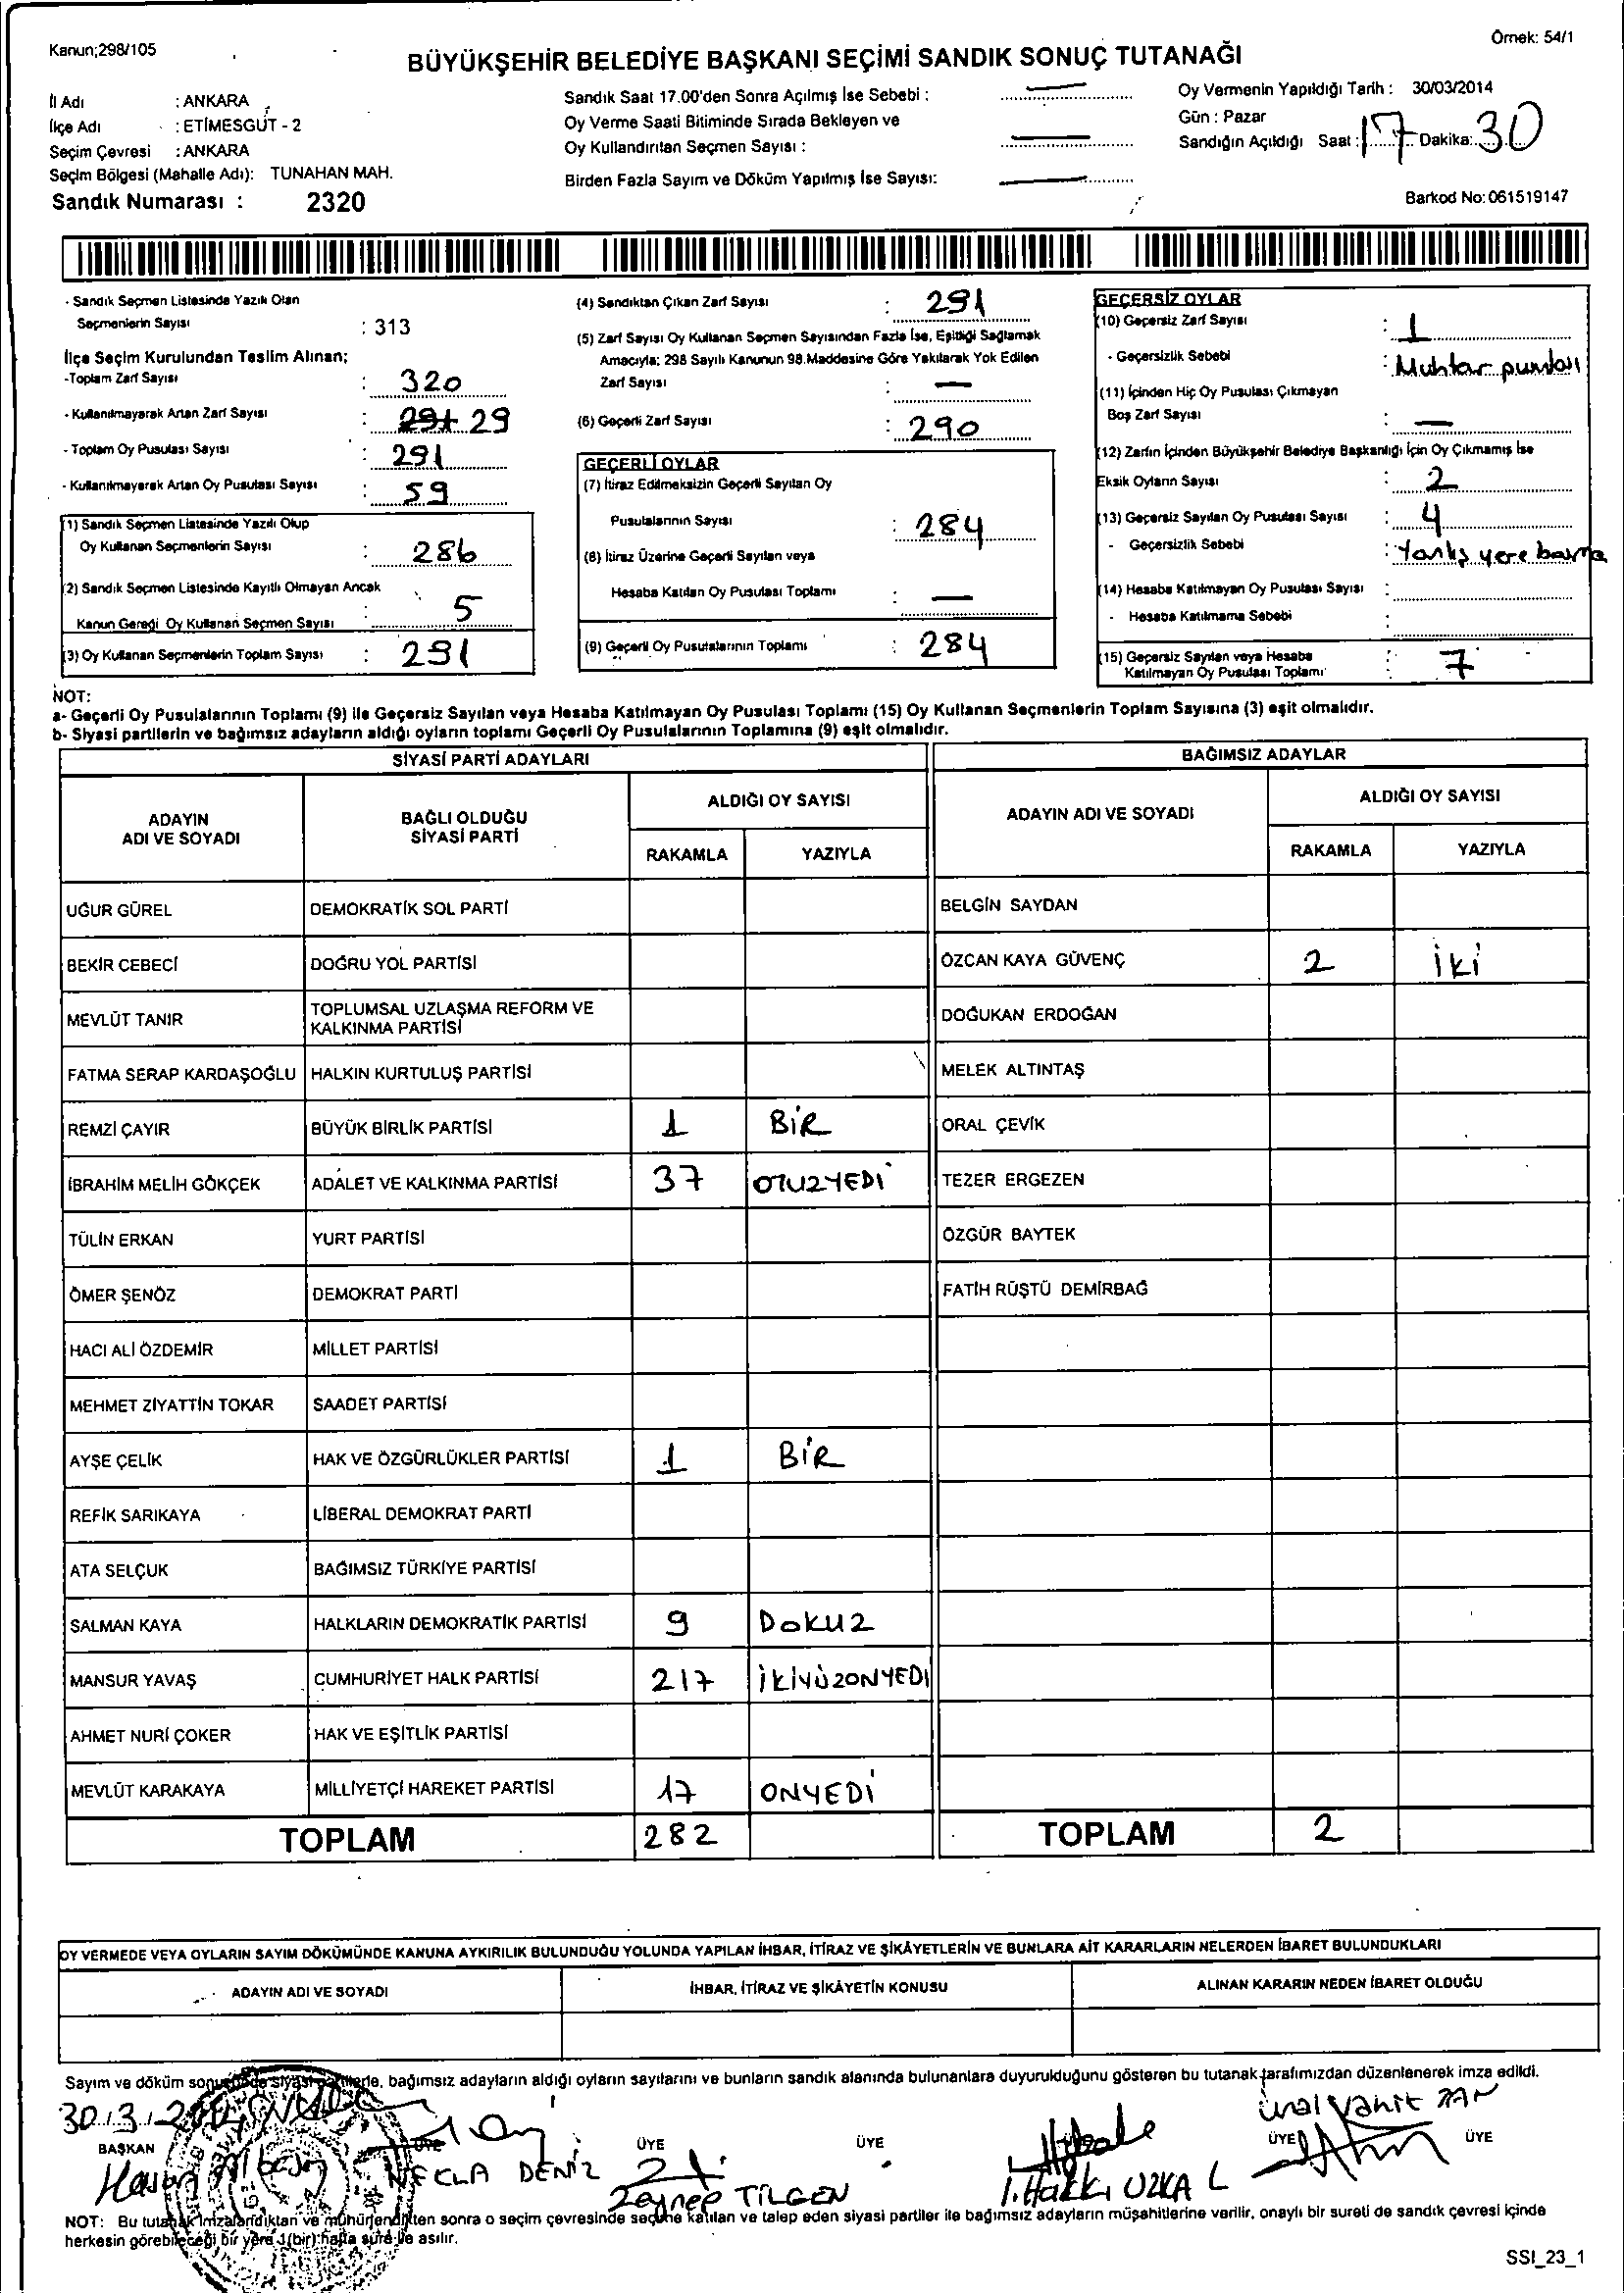 Kanun;298/105
Örnek: 54/1
BÜYÜKŞEHİR BELEDİYE BAŞKANI SEÇİMİ SANDIK SONUÇ TUTANAĞI
İl Adı : ANKARA
İlçe Adı : ETİMESGUT - 2
Seçim Çevresi : ANKARA
Seçim Bölgesi (Mahalle Adı): TUNAHAN MAH.
Sandık Numarası : 2320
Sandık Saat 17.00'den Sonra Açılmış İse Sebebi : —
Oy Verme Saati Bitiminde Sırada Bekleyen ve
Oy Kullandırılan Seçmen Sayısı : —
Birden Fazla Sayım ve Döküm Yapılmış İse Sayısı: —
Oy Vermenin Yapıldığı Tarih : 30/03/2014
Gün : Pazar
Sandığın Açıldığı Saat : 17 Dakika: 30
Barkod No: 061519147
- Sandık Seçmen Listesinde Yazılı Olan
Seçmenlerin Sayısı : 313
İlçe Seçim Kurulundan Teslim Alınan;
-Toplam Zarf Sayısı : 320
- Kullanılmayarak Artan Zarf Sayısı : 291 29
- Toplam Oy Pusulası Sayısı : 291
- Kullanılmayarak Artan Oy Pusulası Sayısı : 59
(1) Sandık Seçmen Listesinde Yazılı Olup
Oy Kullanan Seçmenlerin Sayısı : 286
(2) Sandık Seçmen Listesinde Kayıtlı Olmayan Ancak
Kanun Gereği Oy Kullanan Seçmen Sayısı : 5
(3) Oy Kullanan Seçmenlerin Toplam Sayısı : 291
(4) Sandıktan Çıkan Zarf Sayısı : 291
(5) Zarf Sayısı Oy Kullanan Seçmen Sayısından Fazla İse, Eşitliği Sağlamak
Amacıyla; 298 Sayılı Kanunun 98.Maddesine Göre Yakılarak Yok Edilen
Zarf Sayısı : —
(6) Geçerli Zarf Sayısı : 290
GEÇERLİ OYLAR
(7) İtiraz Edilmeksizin Geçerli Sayılan Oy
Pusulalarının Sayısı : 284
(8) İtiraz Üzerine Geçerli Sayılan veya
Hesaba Katılan Oy Pusulası Toplamı : —
(9) Geçerli Oy Pusulalarının Toplamı : 284
GEÇERSİZ OYLAR
(10) Geçersiz Zarf Sayısı : 1
- Geçersizlik Sebebi : Muhtar
(11) İçinden Hiç Oy Pusulası Çıkmayan
Boş Zarf Sayısı : —
(12) Zarfın İçinden Büyükşehir Belediye Başkanlığı İçin Oy Çıkmamış İse
Eksik Oyların Sayısı : 2
(13) Geçersiz Sayılan Oy Pusulası Sayısı : 4
- Geçersizlik Sebebi : Yanlış yere basma
(14) Hesaba Katılmayan Oy Pusulası Sayısı :
- Hesaba Katılmama Sebebi :
(15) Geçersiz Sayılan veya Hesaba
Katılmayan Oy Pusulası Toplamı : 7
NOT:
a- Geçerli Oy Pusulalarının Toplamı (9) ile Geçersiz Sayılan veya Hesaba Katılmayan Oy Pusulası Toplamı (15) Oy Kullanan Seçmenlerin Toplam Sayısına (3) eşit olmalıdır.
b- Siyasi partilerin ve bağımsız adayların aldığı oyların toplamı Geçerli Oy Pusulalarının Toplamına (9) eşit olmalıdır.
SİYASİ PARTİ ADAYLARI
BAĞIMSIZ ADAYLAR
ADAYIN
ADI VE SOYADI
BAĞLI OLDUĞU
SİYASİ PARTİ
ALDIĞI OY SAYISI
RAKAMLA YAZIYLA
ADAYIN ADI VE SOYADI
ALDIĞI OY SAYISI
RAKAMLA YAZIYLA
UĞUR GÜREL DEMOKRATİK SOL PARTİ BELGİN SAYDAN
BEKİR CEBECİ DOĞRU YOL PARTİSİ ÖZCAN KAYA GÜVENÇ 2 İKİ
MEVLÜT TANIR TOPLUMSAL UZLAŞMA REFORM VE
KALKINMA PARTİSİ DOĞUKAN ERDOĞAN
FATMA SERAP KARDAŞOĞLU HALKIN KURTULUŞ PARTİSİ MELEK ALTINTAŞ
REMZİ ÇAYIR BÜYÜK BİRLİK PARTİSİ 1 BİR ORAL ÇEVİK
İBRAHİM MELİH GÖKÇEK ADALET VE KALKINMA PARTİSİ 37 OTUZYEDİ TEZER ERGEZEN
TÜLİN ERKAN YURT PARTİSİ ÖZGÜR BAYTEK
ÖMER ŞENÖZ DEMOKRAT PARTİ FATİH RÜŞTÜ DEMİRBAĞ
HACI ALİ ÖZDEMİR MİLLET PARTİSİ
MEHMET ZİYATTİN TOKAR SAADET PARTİSİ
AYŞE ÇELİK HAK VE ÖZGÜRLÜKLER PARTİSİ 1 BİR
REFİK SARIKAYA LİBERAL DEMOKRAT PARTİ
ATA SELÇUK BAĞIMSIZ TÜRKİYE PARTİSİ
SALMAN KAYA HALKLARIN DEMOKRATİK PARTİSİ 9 DOKUZ
MANSUR YAVAŞ CUMHURİYET HALK PARTİSİ 217 İKİYÜZONYEDİ
AHMET NURİ ÇOKER HAK VE EŞİTLİK PARTİSİ
MEVLÜT KARAKAYA MİLLİYETÇİ HAREKET PARTİSİ 17 ONYEDİ
TOPLAM 282 TOPLAM 2
OY VERMEDE VEYA OYLARIN SAYIM DÖKÜMÜNDE KANUNA AYKIRILIK BULUNDUĞU YOLUNDA YAPILAN İHBAR, İTİRAZ VE ŞİKÂYETLERİN VE BUNLARA AİT KARARLARIN NELERDEN İBARET BULUNDUKLARI
ADAYIN ADI VE SOYADI İHBAR, İTİRAZ VE ŞİKÂYETİN KONUSU ALINAN KARARIN NEDEN İBARET OLDUĞU
Sayım ve döküm bağımsız adayların aldığı oyların sayılarını ve bunların sandık alanında bulunanlara duyurulduğunu gösteren bu tutanak tarafımızdan düzenlenerek imza edildi.
30.3.
BAŞKAN ÜYE ÜYE ÜYE ÜYE ÜYE
Hasan
NECLA DENİZ
Zeynep TİLGEN
İ. Hakkı UZKAL
Ünal Vahit
NOT: Bu tutanak imzalandıktan ve mühürlendikten sonra o seçim çevresinde seçime katılan ve talep eden siyasi partiler ile bağımsız adayların müşahitlerine verilir, onaylı bir sureti de sandık çevresi içinde
herkesin görebileceği bir yere 1(bir) hafta süre ile asılır.
SSI_23_1